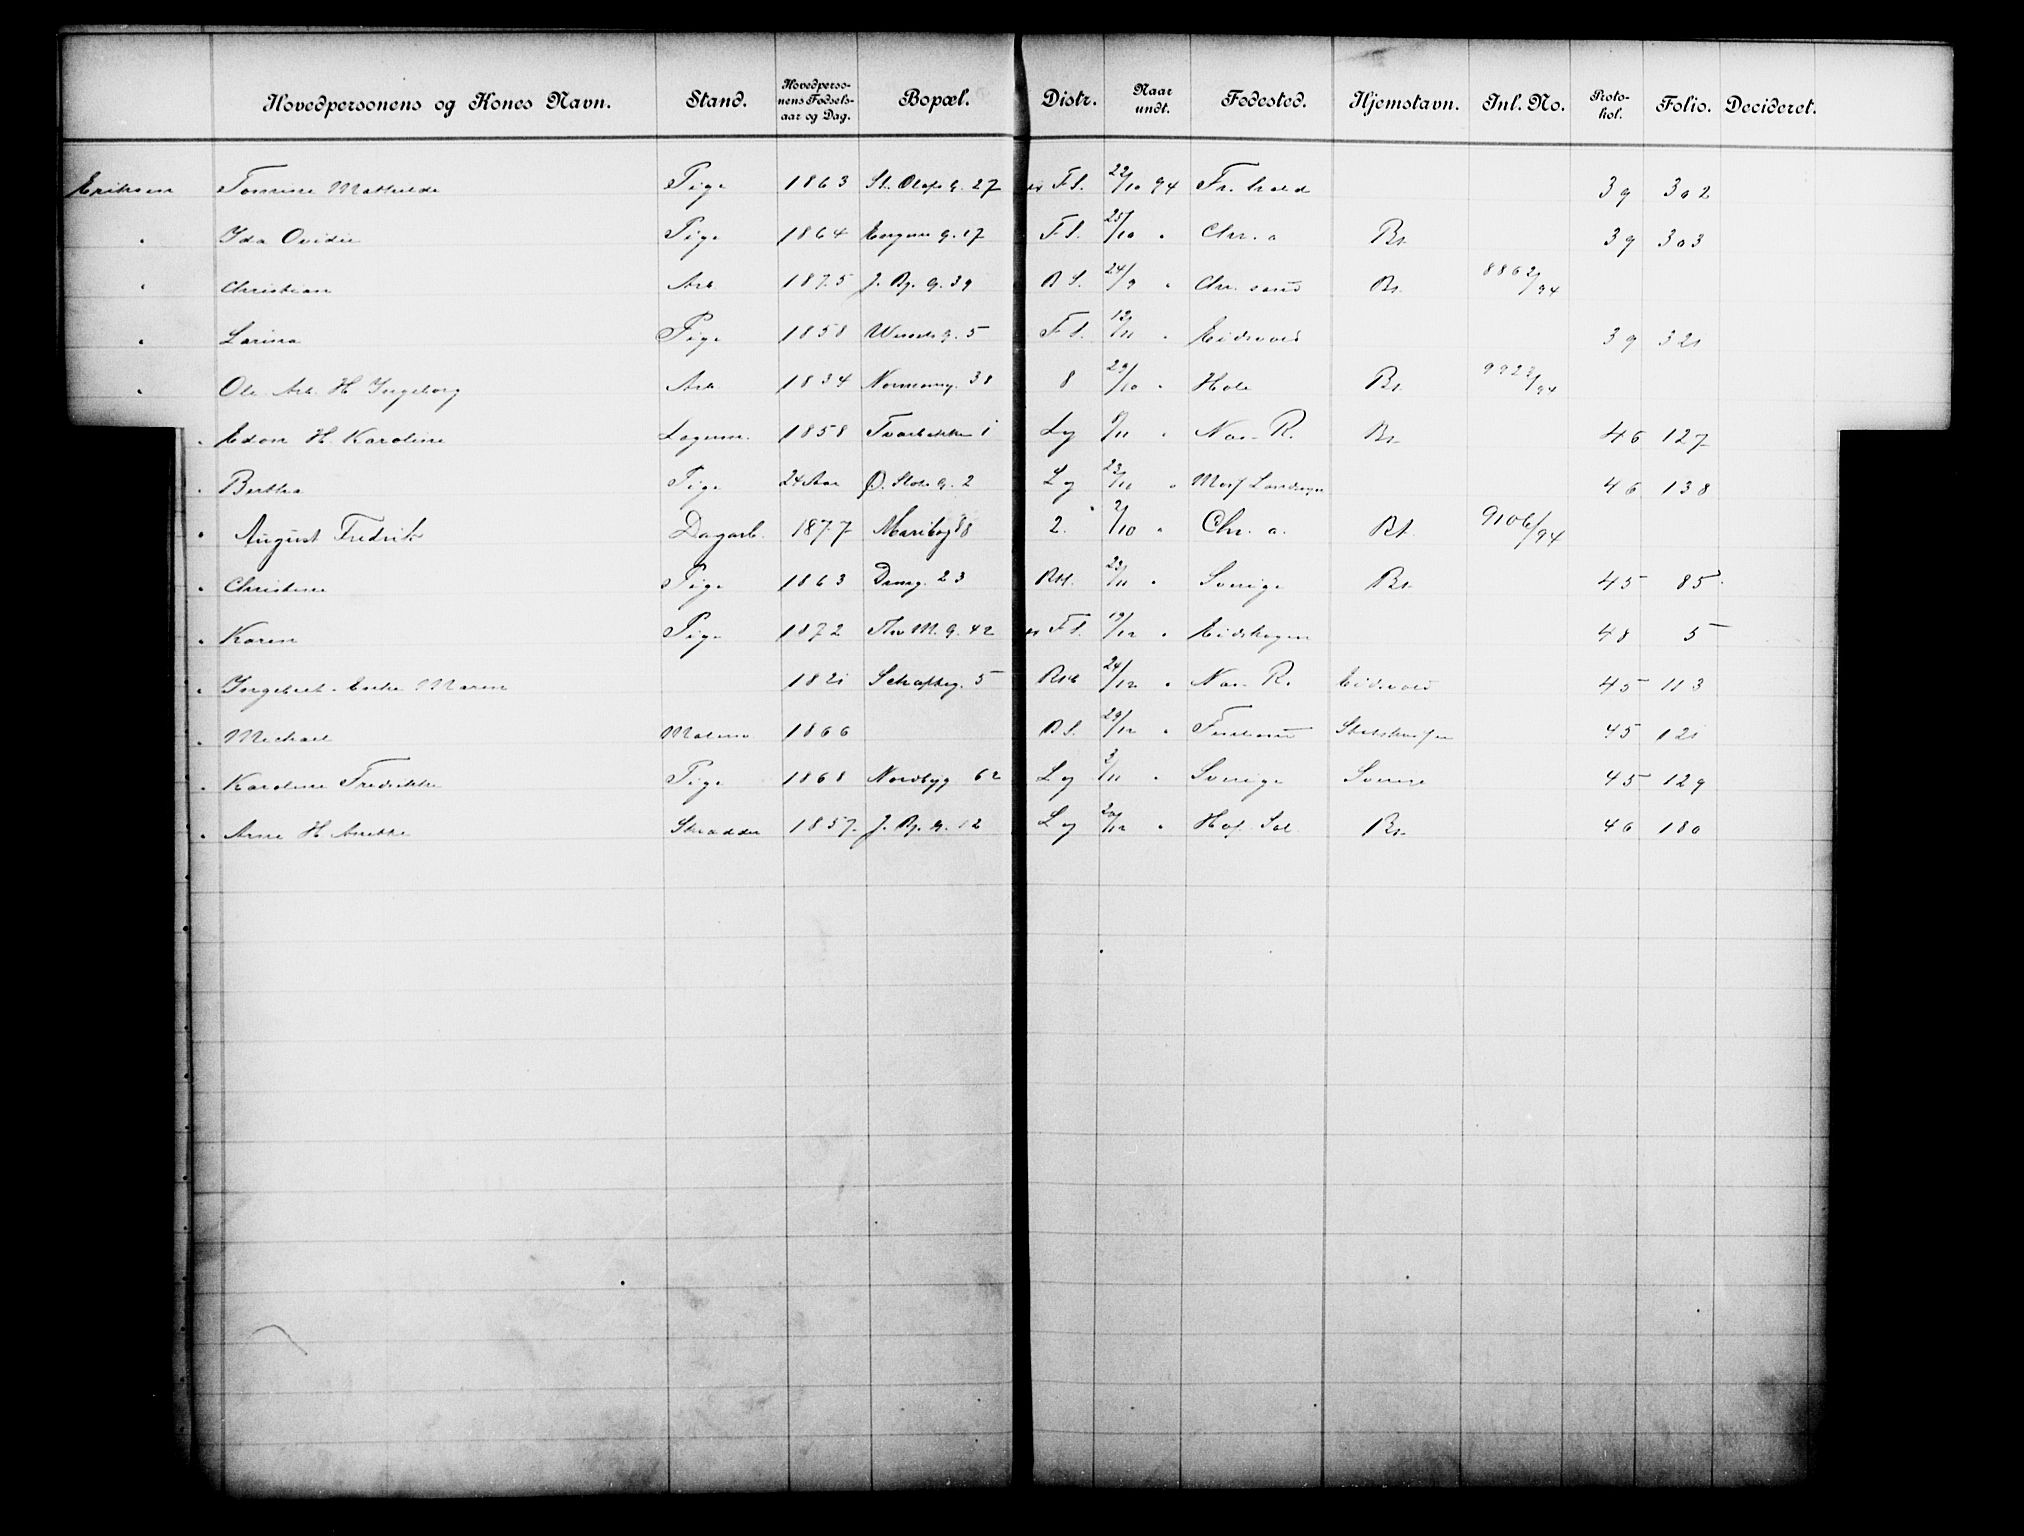 Hovedpersonens og Kones Navn. Stand. Hovedperso-nens Fødsels-aar og Dag. Bopæl. Distr. Naar undt. Fødested. Hjemstavn. Inl. No. Proto-kol. Folio. Decideret.
Eriksen Tomine Mathilde Pige 1863 St. Olafs g. 27 F S. 22/10 94 Fr. hald 39 302
" Ida Ovidie Pige 1864 g. 17 F S. 25/10 " Chr. a Bt. 39 303
" Christian Arb 1875 J. Bj. g. 39 B S. 24/9 " Chr. sand Bt. 8862/94
" Larina Pige 1858 Wessels g. 5 F S. 12/11 " Eidsvold 39 321
" Ole Arb. H. Ingeborg Arb 1834 Normanng. 38 8 29/10 " Hole Bt. 9923/94
" Edon H. Karoline Lagerm. 1858 Tværbakken 1 Lg 8/11 " Næs R. Bt. 46 127
" Berthea Pige 24 Aar Ø. Slots g. 2 Lg 23/11 " Landsogn 46 138
" August Fredrik Dagarb. 1877 Maribog 88 2. 2/10 " Chr. a. Bt. 9106/94
" Christine Pige 1863 Dramg. 23 RH. 23/11 " Sverige Bt. 45 85
" Karen Pige 1872 Thv M. g. 42 F S. 19/12 " Eidskogen 48 5
" Ingebret Enke Maren 1821 Schaftelg. 5 RH 24/12 " Næs R. Eidsvold 45 113
" Michael 1866 B S. 29/12 " 45 121
" Karoline Fredrikke Pige 1868 Nordbyg 62 Lg 3/11 " Sverige Sverige 45 129
" Arne H. Anette Skrædder 1857 J. Bj. g. 12 Lg 20/12 " Hof. Sol. Bt. 46 180